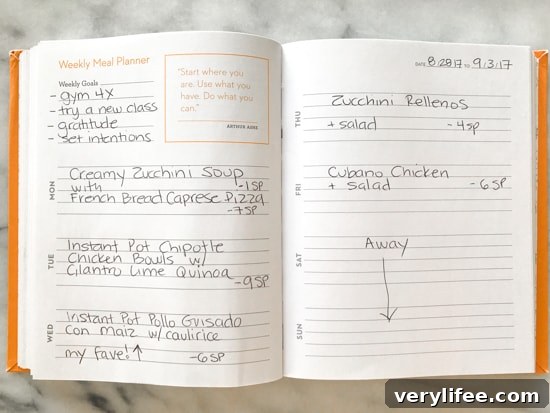 Weekly Meal Planner
Weekly Goals
- gym 4x
- try a new class
- gratitude
- set intentions
"Start where you
are. Use what you
have. Do what you
can."
ARTHUR ASHE
MON
Creamy Zucchini Soup
with -1SP
French Bread Caprese Pizza
-7SP
TUE
Instant Pot Chipotle
Chicken Bowls w/
Cilantro Lime Quinoa
-9SP
WED
Instant Pot Pollo Guisado
con Maiz w/caulirice
my fave!↑ -6SP
DATE 8/28/17 TO 9/3/17
THU
Zucchini Rellenos
+ salad -4SP
FRI
Cubano Chicken
+ salad -6SP
SAT
Away
SUN
verylifee.com